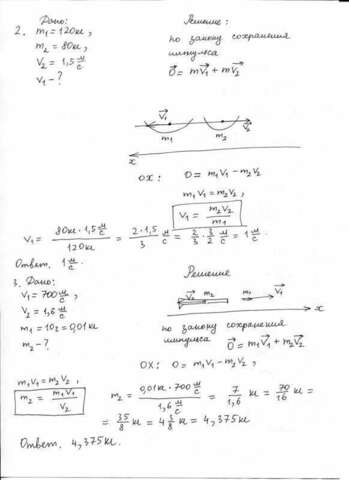 Дано:
Решение:
2. m₁ = 120 кг,
m₂ = 80 кг,
V₂ = 1,5 м/с
V₁ - ?
по закону сохранения
импульса
0⃗ = mV⃗₁ + mV⃗₂
V⃗₁
V⃗₂
m₁ m₂
x
OX: 0 = m₁V₁ - m₂V₂
m₁V₁ = m₂V₂,
V₁ = m₂V₂/m₁
V₁ = 80 кг · 1,5 м/с / 120 кг = 2·1,5/3 м/с = 2/3 · 3/2 м/с = 1 м/с
Ответ. 1 м/с.
3. Дано:
Решение
V₁ = 700 м/с
V₂ = 1,6 м/с
m₁ = 10г = 0,01 кг
m₂ - ?
V⃗₂ m₂ m₁ V⃗₁
x
по закону сохранения
импульса 0⃗ = m₁V⃗₁ + m₂V⃗₂
OX: 0 = m₁V₁ - m₂V₂,
m₁V₁ = m₂V₂,
m₂ = m₁V₁/V₂
m₂ = 0,01 кг · 700 м/с / 1,6 м/с = 7/1,6 кг = 70/16 кг =
= 35/8 кг = 4 3/8 кг = 4,375 кг
Ответ. 4,375 кг.